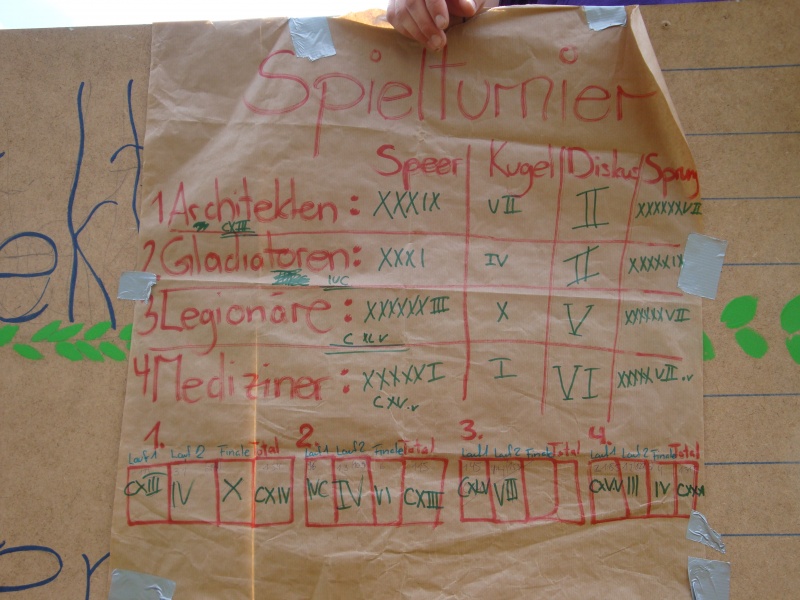 Spielturnier
Speer Kugel Diskus Sprung
1 Architekten: XXXIX VII II XXXXXXVII
CXIII
2 Gladiatoren: XXXI IV II XXXXXIX
IVC
3 Legionäre: XXXXXXIII X V XXXXXVII
CXLV
4 Mediziner: XXXXXI I VI XXXXXVII.V
CXV.V
1. 2. 3. 4.
Lauf 1 Lauf 2 Finale Total Lauf 1 Lauf 2 Finale Total Lauf 1 Lauf 2 Finale Total Lauf 1 Lauf 2 Finale Total
CXIII IV X CXIV IVC IV VI CXIII CXLV VIII III IV